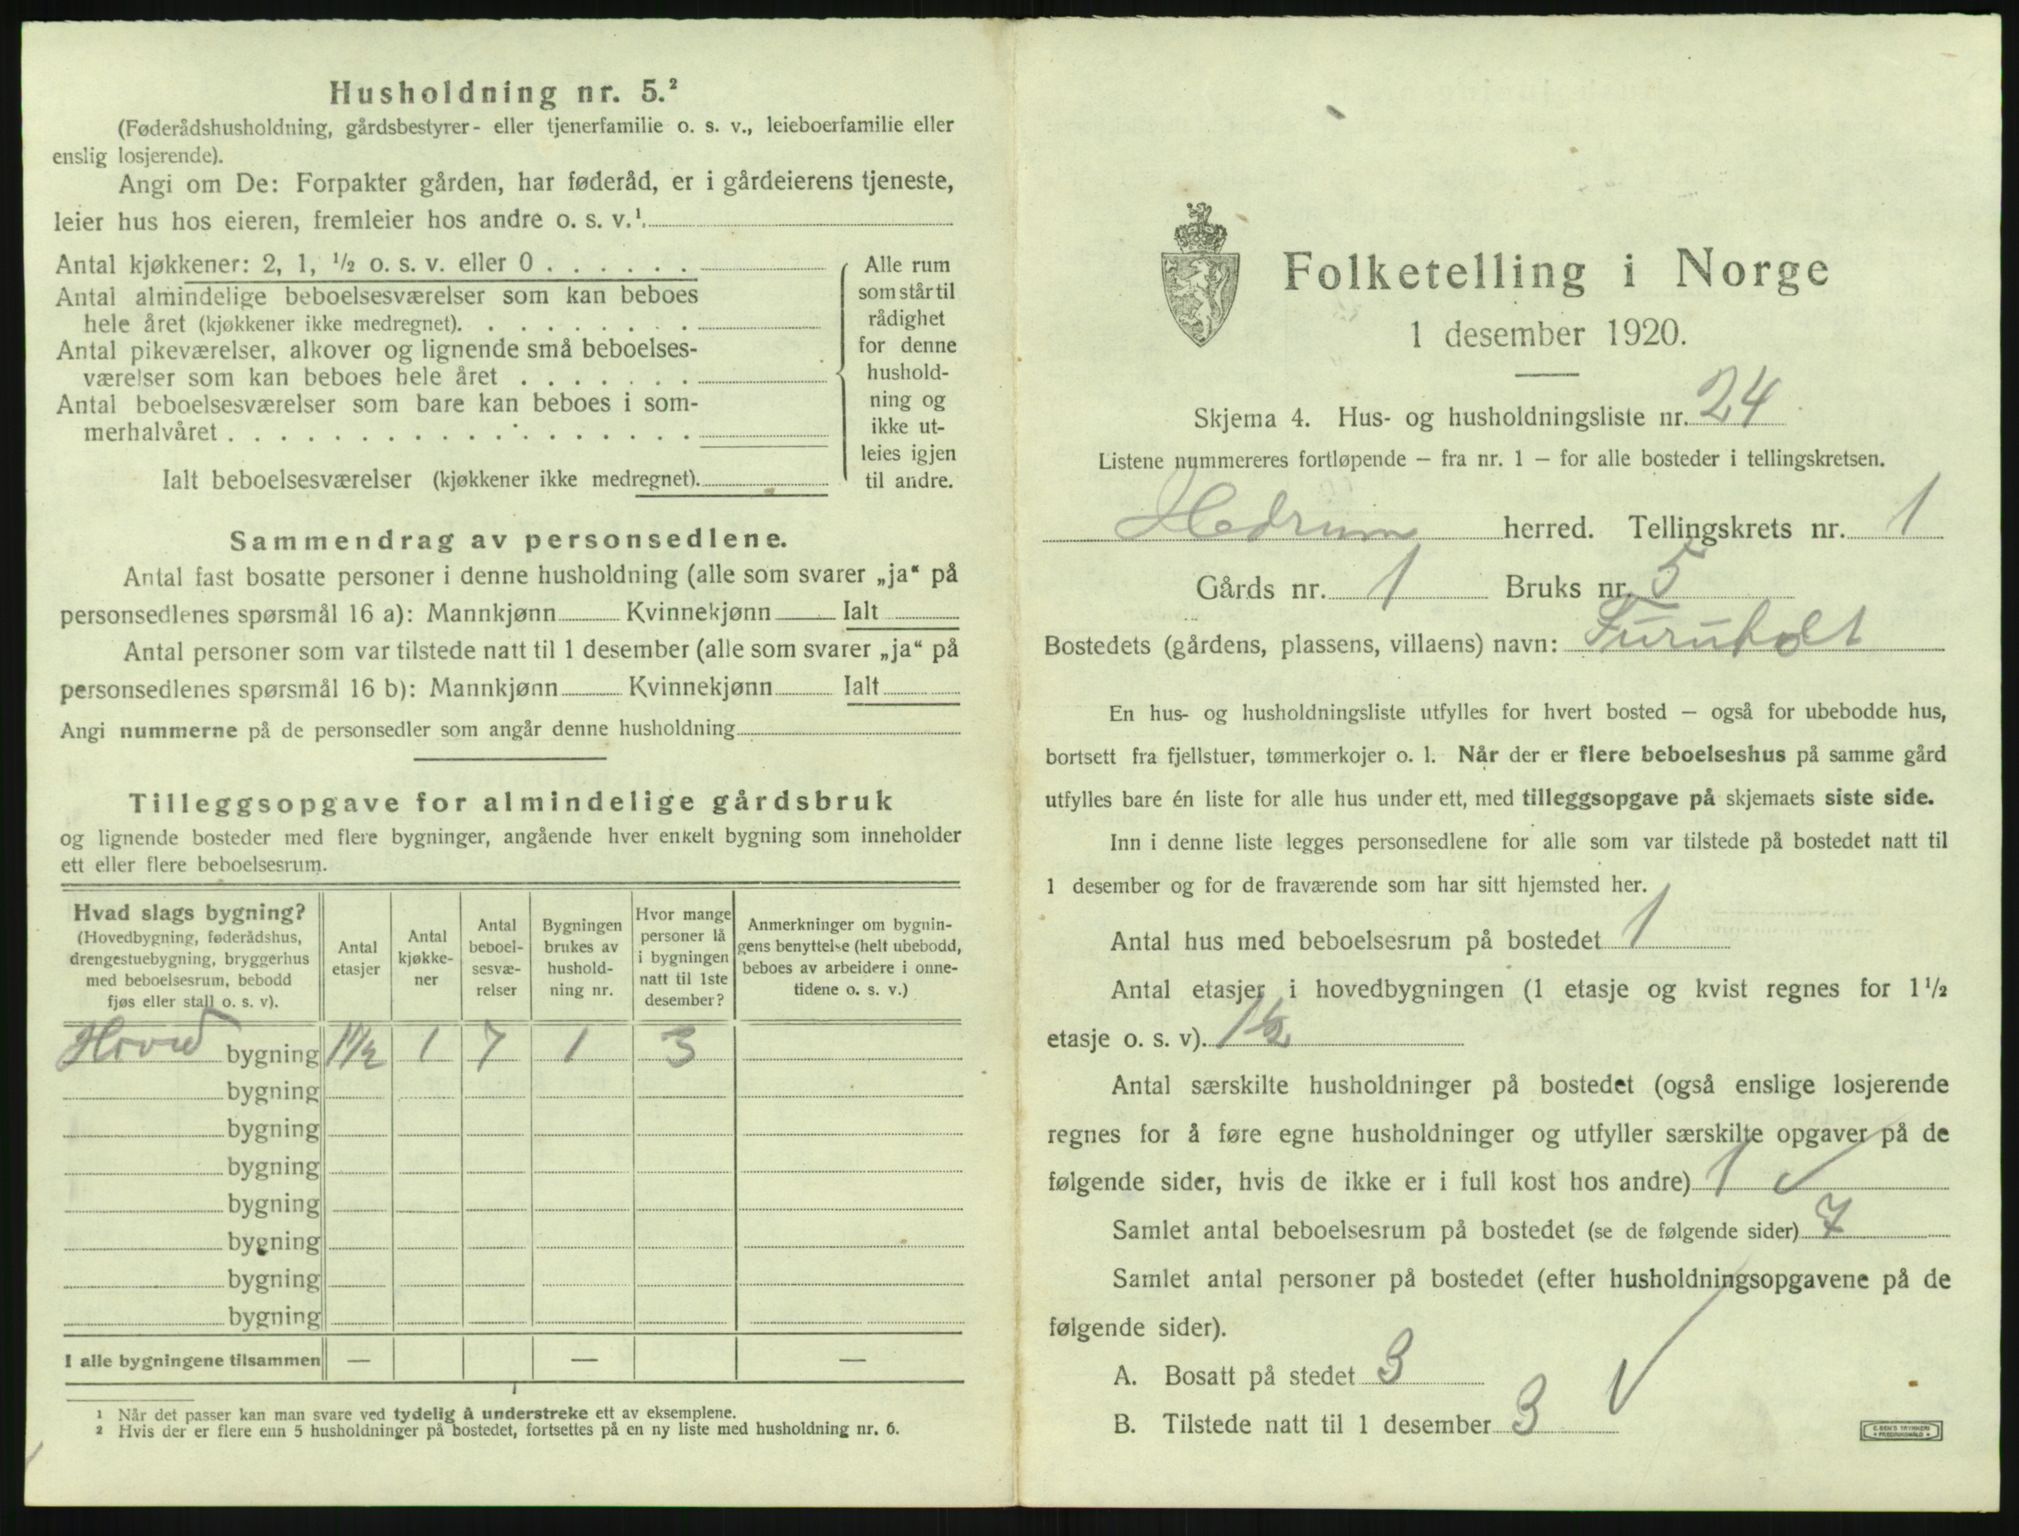 Husholdning nr. 5.²
(Føderådshusholdning, gårdsbestyrer- eller tjenerfamilie o. s. v., leieboerfamilie eller
enslig losjerende).
Angi om De: Forpakter gården, har føderåd, er i gårdeierens tjeneste,
leier hus hos eieren, fremleier hos andre o. s. v.¹
Antal kjøkkener: 2, 1, ½ o. s. v. eller 0
Antal almindelige beboelsesværelser som kan beboes
hele året (kjøkkener ikke medregnet).
Antal pikeværelser, alkover og lignende små beboelses-
værelser som kan beboes hele året
Antal beboelsesværelser som bare kan beboes i som-
merhalvåret
Ialt beboelsesværelser (kjøkkener ikke medregnet).
Alle rum
som står til
rådighet
for denne
hushold-
ning og
ikke ut-
leies igjen
til andre.
Sammendrag av personsedlene.
Antal fast bosatte personer i denne husholdning (alle som svarer „ja“ på
personsedlenes spørsmål 16 a): Mannkjønn Kvinnekjønn Ialt
Antal personer som var tilstede natt til 1 desember (alle som svarer „ja“ på
personsedlenes spørsmål 16 b): Mannkjønn Kvinnekjønn Ialt
Angi nummerne på de personsedler som angår denne husholdning
Tilleggsopgave for almindelige gårdsbruk
og lignende bosteder med flere bygninger, angående hver enkelt bygning som inneholder
ett eller flere beboelsesrum.
Hvad slags bygning?
(Hovedbygning, føderådshus,
drengestuebygning, bryggerhus
med beboelsesrum, bebodd
fjøs eller stall o. s. v).
Antal
etasjer
Antal
kjøkke-
ner
Antal
beboel-
sesvæ-
relser
Bygningen
brukes av
hushold-
ning nr.
Hvor mange
personer lå
i bygningen
natt til 1ste
desember?
Anmerkninger om bygnin-
gens benyttelse (helt ubebodd,
beboes av arbeidere i onne-
tidene o. s. v.)
Hoved bygning 1½ 1 7 1 3
bygning
bygning
bygning
bygning
bygning
bygning
bygning
I alle bygningene tilsammen — — —
¹ Når det passer kan man svare ved tydelig å understreke ett av eksemplene.
² Hvis der er flere enn 5 husholdninger på bostedet, fortsettes på en ny liste med husholdning nr. 6.
Folketelling i Norge
1 desember 1920.
Skjema 4. Hus- og husholdningsliste nr. 24
Listene nummereres fortløpende — fra nr. 1 — for alle bosteder i tellingskretsen.
Hedrum herred. Tellingskrets nr. 1
Gårds nr. 1 Bruks nr. 5
Bostedets (gårdens, plassens, villaens) navn: Furuholt
En hus- og husholdningsliste utfylles for hvert bosted — også for ubebodde hus,
bortsett fra fjellstuer, tømmerkojer o. l. Når der er flere beboelseshus på samme gård
utfylles bare én liste for alle hus under ett, med tilleggsopgave på skjemaets siste side.
Inn i denne liste legges personsedlene for alle som var tilstede på bostedet natt til
1 desember og for de fraværende som har sitt hjemsted her.
Antal hus med beboelsesrum på bostedet 1
Antal etasjer i hovedbygningen (1 etasje og kvist regnes for 1½
etasje o. s. v). 1½
Antal særskilte husholdninger på bostedet (også enslige losjerende
regnes for å føre egne husholdninger og utfyller særskilte opgaver på de
følgende sider, hvis de ikke er i full kost hos andre) 1
Samlet antal beboelsesrum på bostedet (se de følgende sider) 7
Samlet antal personer på bostedet (efter husholdningsopgavene på de
følgende sider).
A. Bosatt på stedet 3
B. Tilstede natt til 1 desember 3